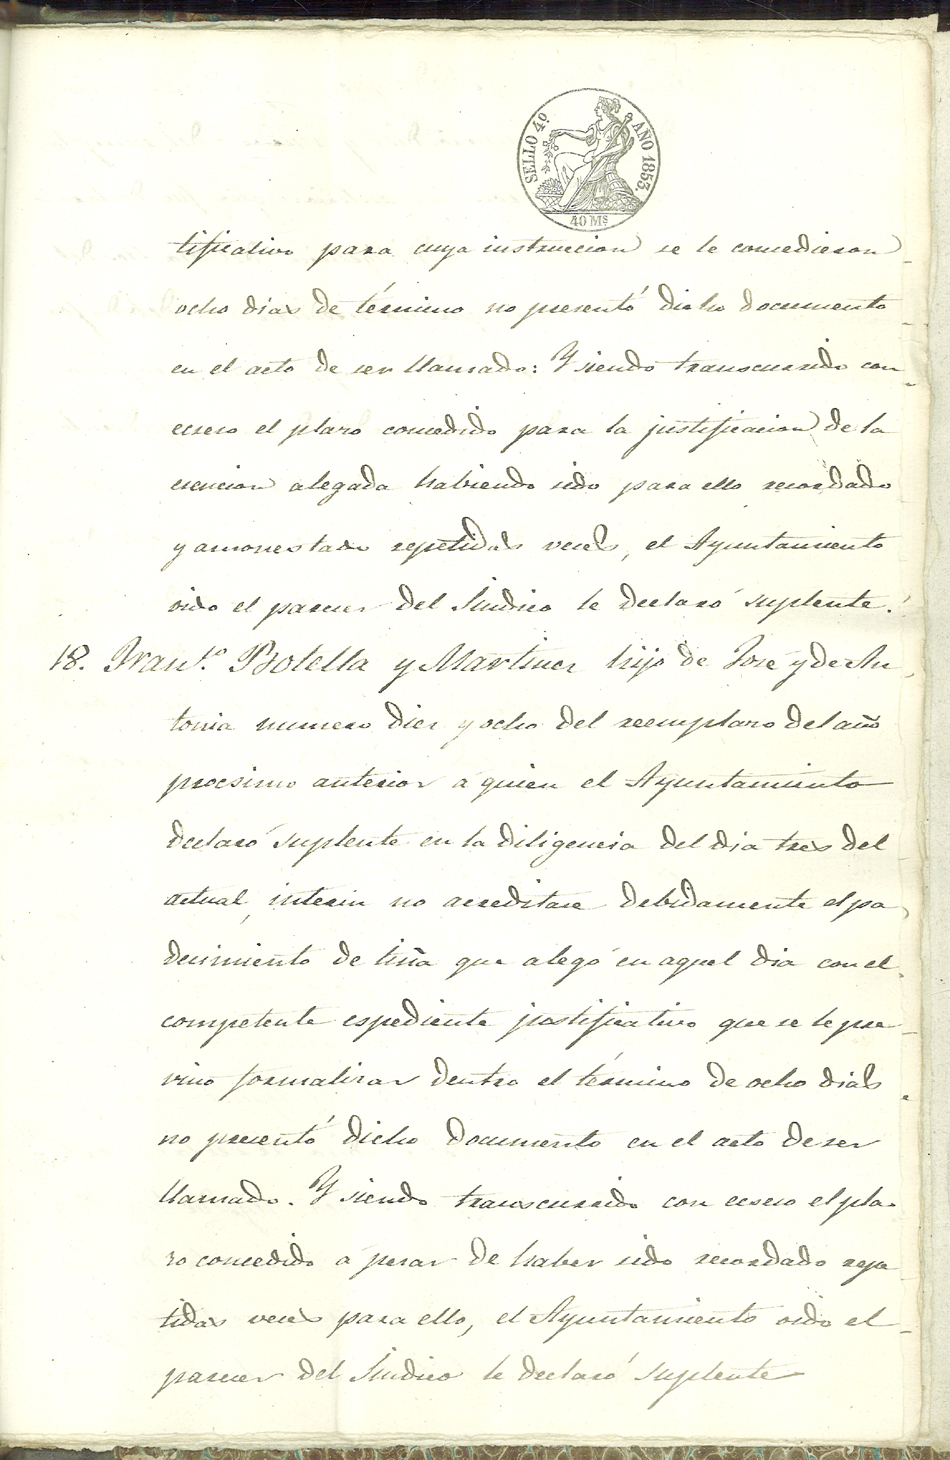 SELLO 4º. AÑO 1853.
40 Ms
tificativo para cuya instruccion se le concedieron
ocho dias de término no presentó dicho documento
en el acto de ser llamado: Y siendo transcurrido con
eceso el plazo concedido para la justificacion de la
esencion alegada habiendo sido para ello recordado
y amonestado repetidas veces, el Ayuntamiento
oido el parecer del Sindico le declaró suplente.
18. Franco. Botella y Martinez hijo de José y de An
tonia numero diez y ocho del reemplazo del año
procsimo anterior a quien el Ayuntamiento
declaró suplente en la diligencia del dia tres del
actual, interin no acreditare debidamente el pa
decimiento de tiña que alegó en aquel dia con el
competente espediente justificativo que se le pre
vino formalizar dentro el término de ocho dias
no presentó dicho documento en el acto de ser
llamado. Y siendo transcurrido con eceso el pla
zo concedido a pesar de haber sido recordado repe
tidas veces para ello, el Ayuntamiento oido el
parecer del Sindico le declaró suplente